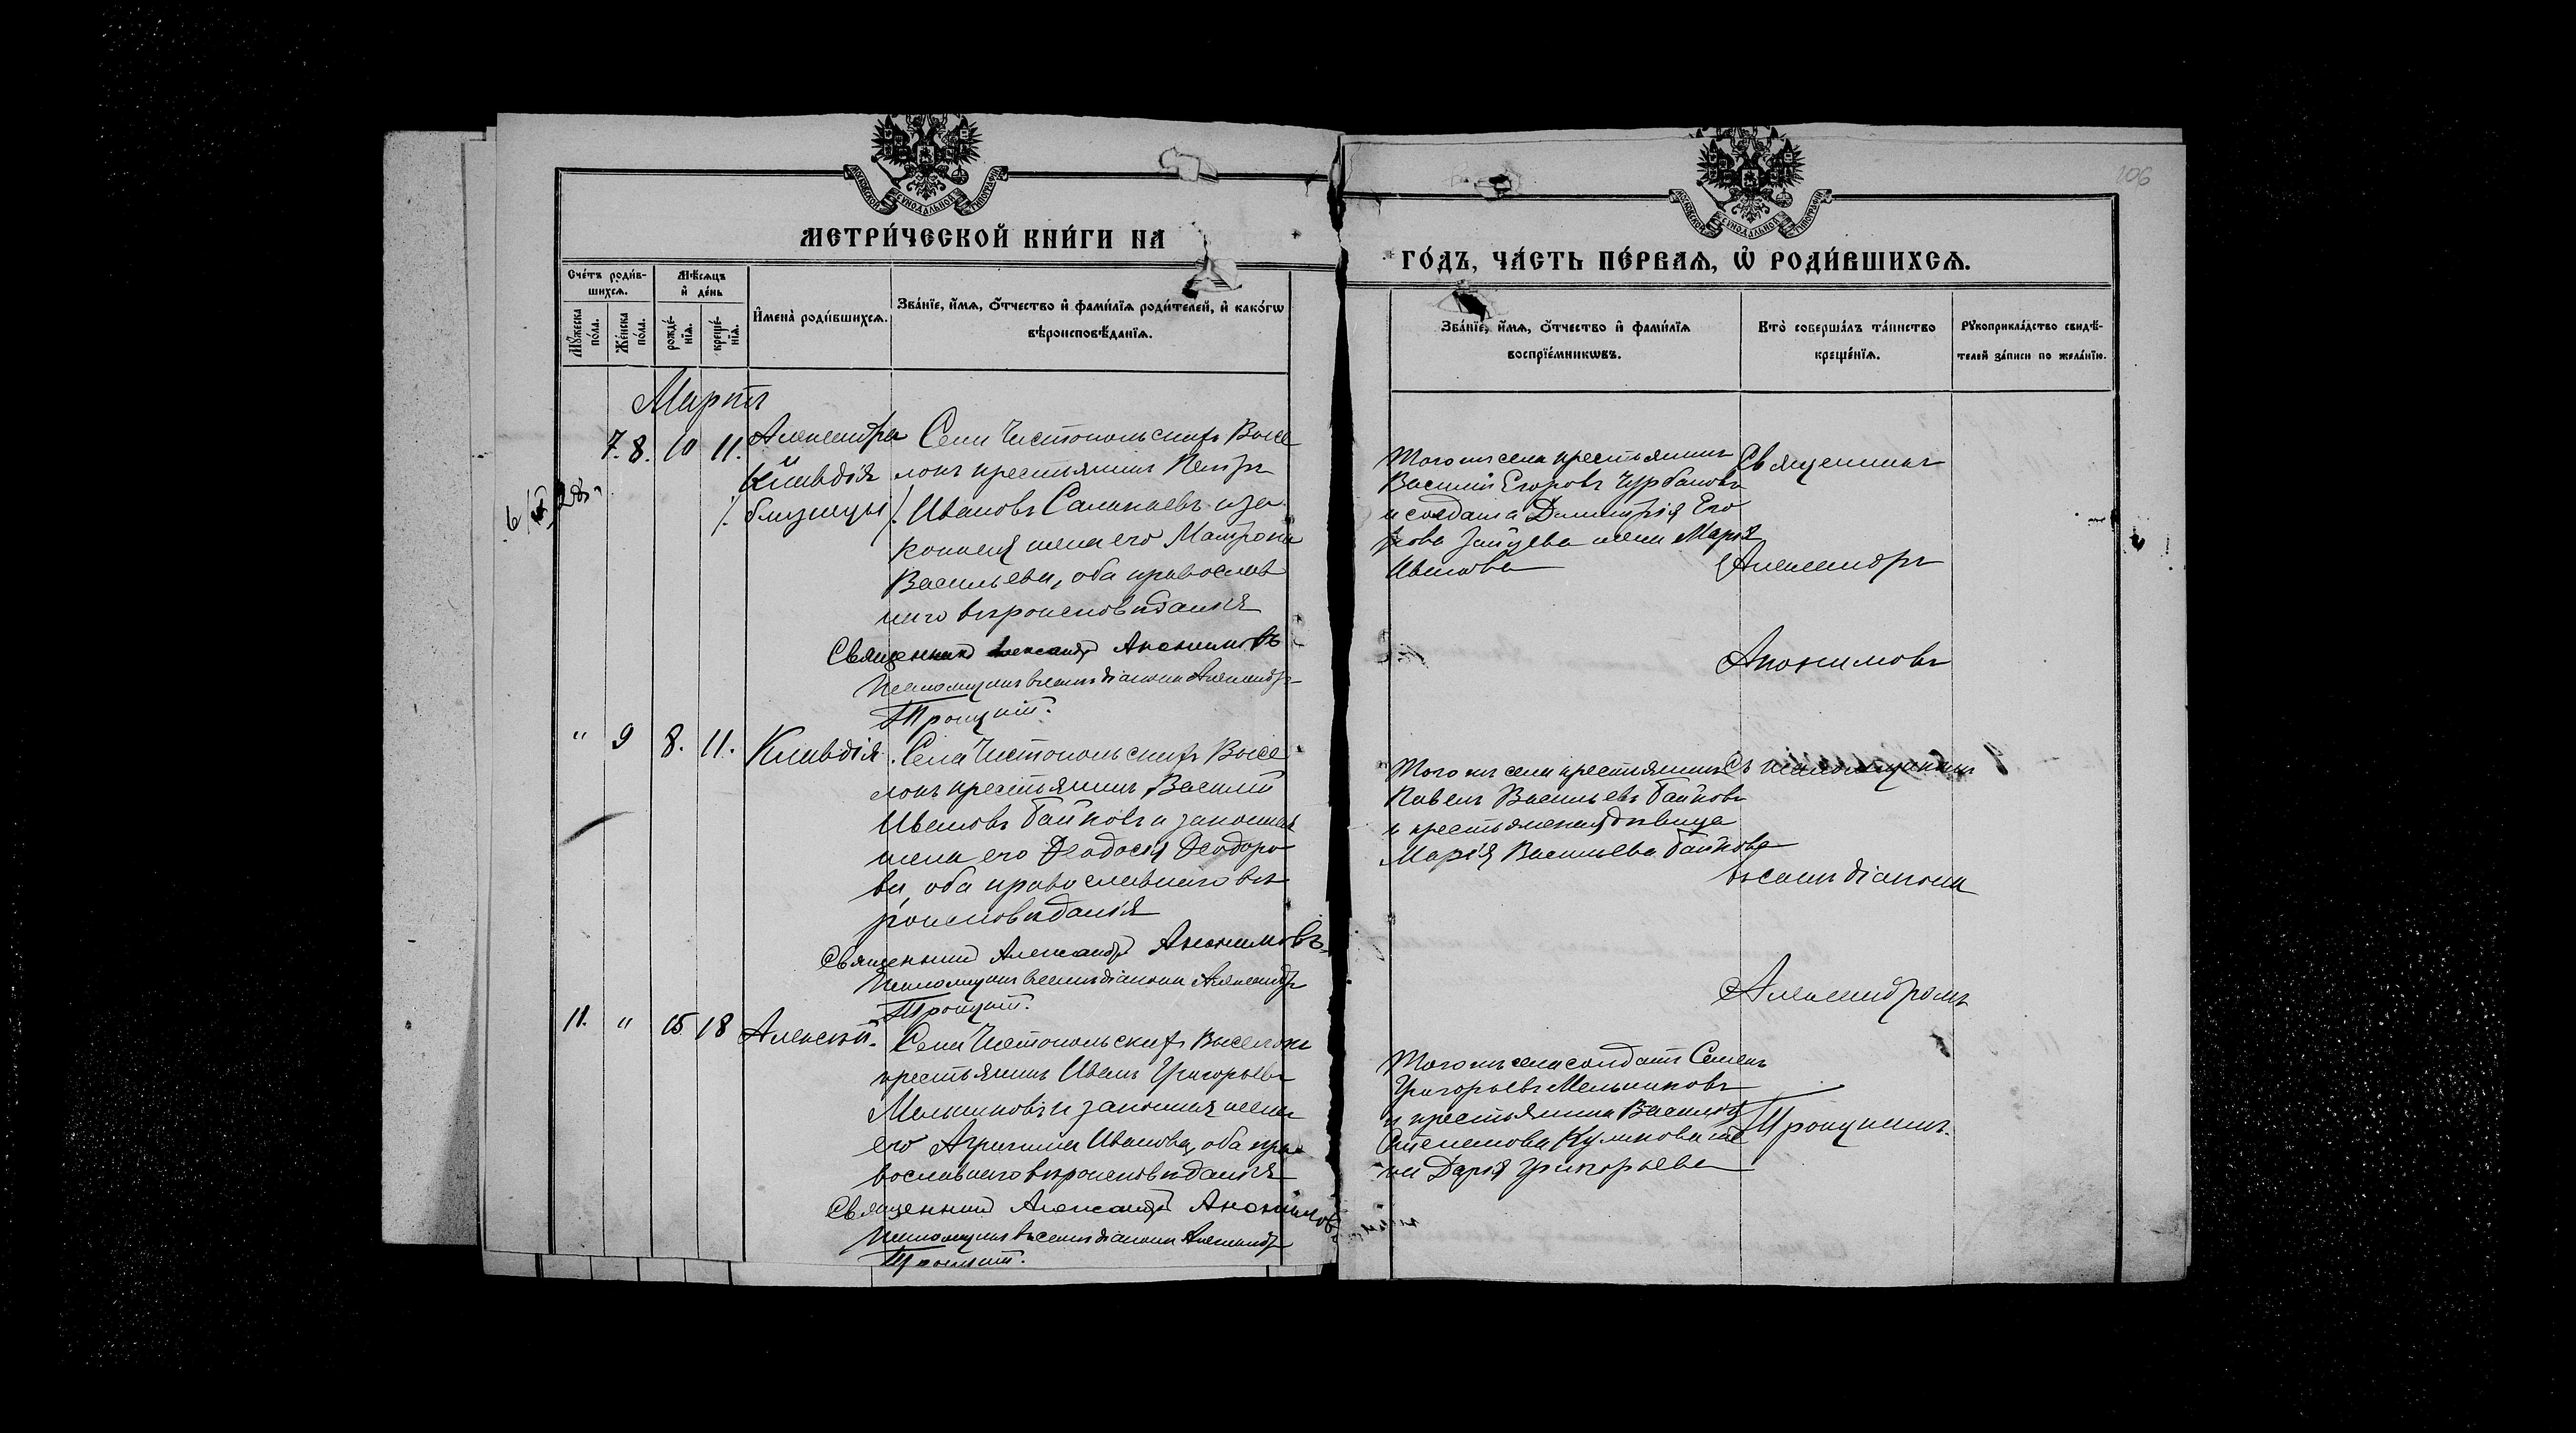 106
МОСКОВСКОЙ СѴНОДАЛЬНОЙ ТИПОГРАФІИ
МОСКОВСКОЙ СѴНОДАЛЬНОЙ ТИПОГРАФІИ
МЕТРИ́ЧЕСКОЙ КНИ́ГИ НА
ГО́ДЪ, ЧА́СТЬ ПЕ́РВАѦ, Ѡ҆ РОДИ́ВШИХСѦ.
Сче́тъ роди́в-
шихсѧ.
Мѣ́сѧцъ
и҆ де́нь
Мꙋ́жеска
по́ла.
Же́нска
по́ла.
рожде́-
нїѧ.
креще́-
нїѧ.
И҆мена̀ роди́вшихсѧ.
Зва́нїе, и҆́мѧ, ѻ҆́тчество и҆ фами́лїѧ роди́телей, и҆ како́гѡ
вѣроисповѣ́данїѧ.
Зва́нїе, и҆́мѧ, ѻ҆́тчество и҆ фами́лїѧ
воспрїе́мникѡвъ.
Кто̀ соверша́лъ та́инство
креще́нїѧ.
Рꙋкоприкла́дство свидѣ́-
телей за́писи по жела́нїю.
Мартъ
7. 8. 10 11. Александра Села Чистопольскихъ Высе
и
Клавдія локъ крестьянинъ Петръ
/. близнецы /. Ивановъ Салмаевъ и за
конная жена его Матрона
Васильева, оба православ
наго вѣроисповѣданія
Священникъ Александръ Анонимовъ
Псаломщикъ въ санѣ діакона Александръ
Троицкій.
Того же села крестьянинъ
Василій Егоровъ Чурбановъ
и солдата Димитрія Его
рова Зайцева жена Марія
Иванова
Священникъ
Александръ
Анонимовъ
" 9 8. 11. Клавдія. Села Чистопольскихъ Высе
локъ крестьянинъ Василій
Ивановъ Байковъ и законная
жена его Ѳеодосія Ѳеодоро
ва, оба православнаго вѣ
роисповѣданія
Священникъ Александръ Анонимовъ
Псаломщикъ въ санѣ діакона Александръ
Троицкій.
Того же села крестьянинъ
Павелъ Васильевъ Байковъ
и крестьянская дѣвица
Марія Васильева Байкова
Съ псаломщикомъ
въ санѣ діакона
Александромъ
11. " 15 18 Алексѣй. Села Чистопольскихъ Выселокъ
крестьянинъ Иванъ Григорьевъ
Мельниковъ и законная жена
его Агрипина Иванова, оба пра
вославнаго вѣроисповѣданія
Священникъ Александръ Анонимовъ
Псаломщикъ въ санѣ діакона Александръ
Троицкій.
Того же села солдатъ Семенъ
Григорьевъ Мельниковъ
и крестьянина Василія
Степанова Куликова же
на Дарія Григорьева
Троицкимъ.